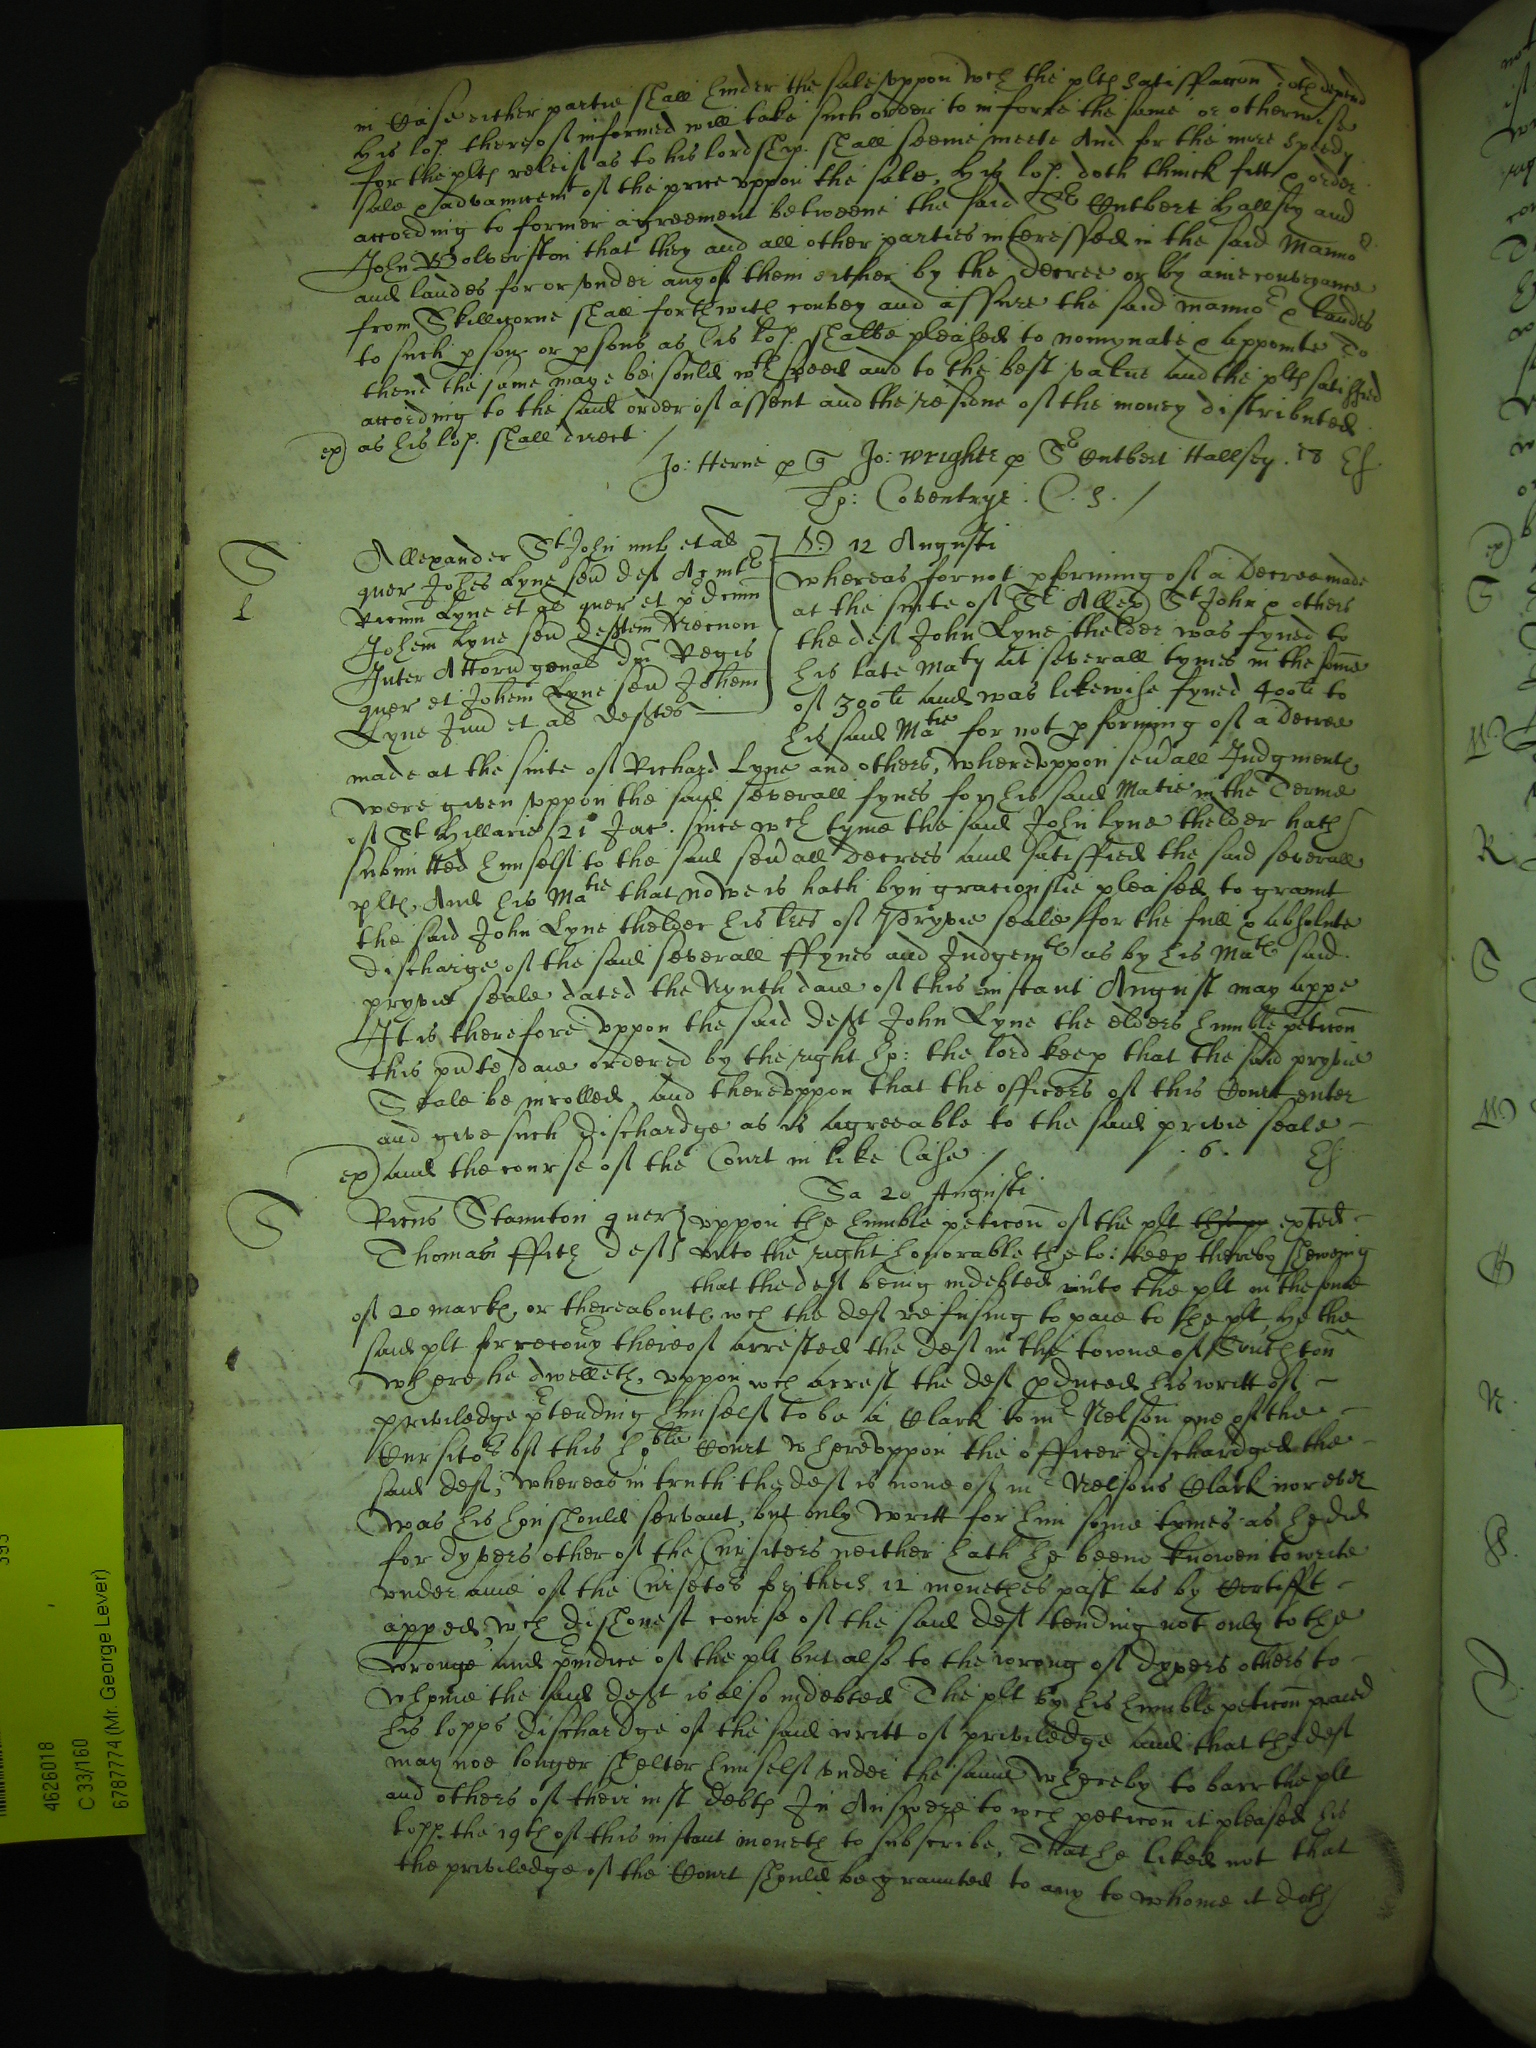 in Case either partie shall hinder the sale uppon wch the plts satisfaccon doth depend
His lop. thereof informed will take such order to inforce the same or otherwise
for the plts releif as to his lordship shall seeme meete And for the more speedy
sale & advauncemt of the price uppon the sale, His lop. doth thinck fitt & order
according to former agreement betweene the said Sr Cutbert Hallsey and
John Wolverston that they and all other parties interessed in the said Manno
and landes for or under any of them either by the Decree or by anie conveyance
from Skillicorne shall forthwith convey and assure the said mannor & landes
to such pson or psons as his lop. shalbe pleased to nomynate & appointe To
thend the same maye bee sould wth speed and to the best value and the plts satisfied
according to the said order of assent and the residue of the money distributed
ex) as his lop. shall direct /
Jo: Herne p Jo: Wrighte p Sr Cutbert Hallsey. 18
Tho: Coventrye: C. S. /
Allexander St John mil et als
quer Johes Lyne sen def
Ricum Lyne et als quer et
Johem Lyne sen
Inter Attorn genal dni Regis
quer et Johem Lyne sen Johem
Lyne Jun et als deftes
12 Augusti
Whereas for not pforming of a Decree made
at the suite of Sr Allex) St John & others
the deft John Lyne thelder was fyned to
his late Maty at severall tymes in the some
of 300li and was likewise fyned 400li to
his said Matie for not pforming of a Decree
made at the suite of Richard Lyne and others, whereuppon sevall Judgments
were given uppon the said severall fynes for his said Matie in the Terme
of St Hillarie 21° Jac. since wch tyme the said John Lyne thelder hath
submitted himself to the said sevall Decrees and satisfied the said severall
plts, And his Matie that nowe is hath byn gratiouslie pleased to graunt
the said John Lyne thelder his lres of Pryvie seale for the full & absolute
discharge of the said severall ffynes and Judgemts as by his Mats said
pryvie seale dated the Nynth daie of this instant August may appe
It is therefore uppon the said deft John Lyne the elders humble peticon
this pnte daie ordered by the right ho: the lord keep that the said pryvie
Seale be inrolled, and thereuppon that the officers of this Court enter
and give such dischardge as is agreeable to the said privie seale
ex) and the course of the Court in like Case / . 6 .
Sa 20 Augusti
Ricus Staunton quer
Thomas ffitch deft
uppon the humble peticon of the plt exted
unto the right honorable the lo: keep thereby shewing
that the deft being indebted unto the plt in the some
of 20 marks, or thereabouts wch the deft refusing to paie to the plt, he the
said plt for recovy thereof arrested the deft in the towne of Southton
where he dwelleth, uppon wch arrest the deft pduced his writt of
priviledge ptending himself to be a Clark to mr Nelson one of the
Cursitors of this hoble Court whereuppon the officer dischardged the
said deft, whereas in truth the deft is none of mr Nelsons Clark nor ever
was his houshould servant, but only writt for him some tymes as he did
for dyvers other of the Cursiters neither hath he beene knowen to write
under anie of the Cursetors for theis 12 monethes past as by Certifft
apped, wch dishonest course of the said deft tending not only to the
wronge and piudice of the plt but also to the wrong of dyvers others to
whome the said deft is also indebted The plt by his humble peticon praied
his lopps dischardge of the said writt of priviledge and that the deft
may noe longer shelter himself under the same whereby to barr the plt
and others of their iust debts In Answere to wch peticon it pleased his
lopp. the 19th of this instant moneth to subscribe, That he liked not that
the priviledge of the Court should be graunted to any to whome it doth
4626018
C 33/160
6787774 (Mr. George Lever)